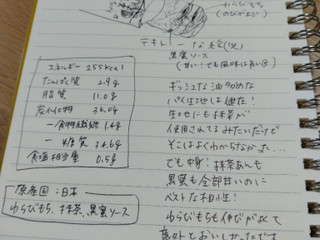 わらびもち
(のびがよい)
テキトーな絵(笑)
黒蜜ソース
エネルギー 255kcal
たんぱく質 2.9g
脂質 11.0g
炭水化物 36.0g
ー食物繊維 1.4g
ー糖質 34.6g
食塩相当量 0.5g
原産国:日本
わらびもち、抹茶、黒蜜ソース
パイ生地は健在!
生地にも抹茶が
使用されてるみたいだけど
そこはよくわからなかった…
でも中身!抹茶あんも
黒蜜も全部甘いのに
ベストな相性!
わらびもちも伸びがよくて
意外とおいしかったです